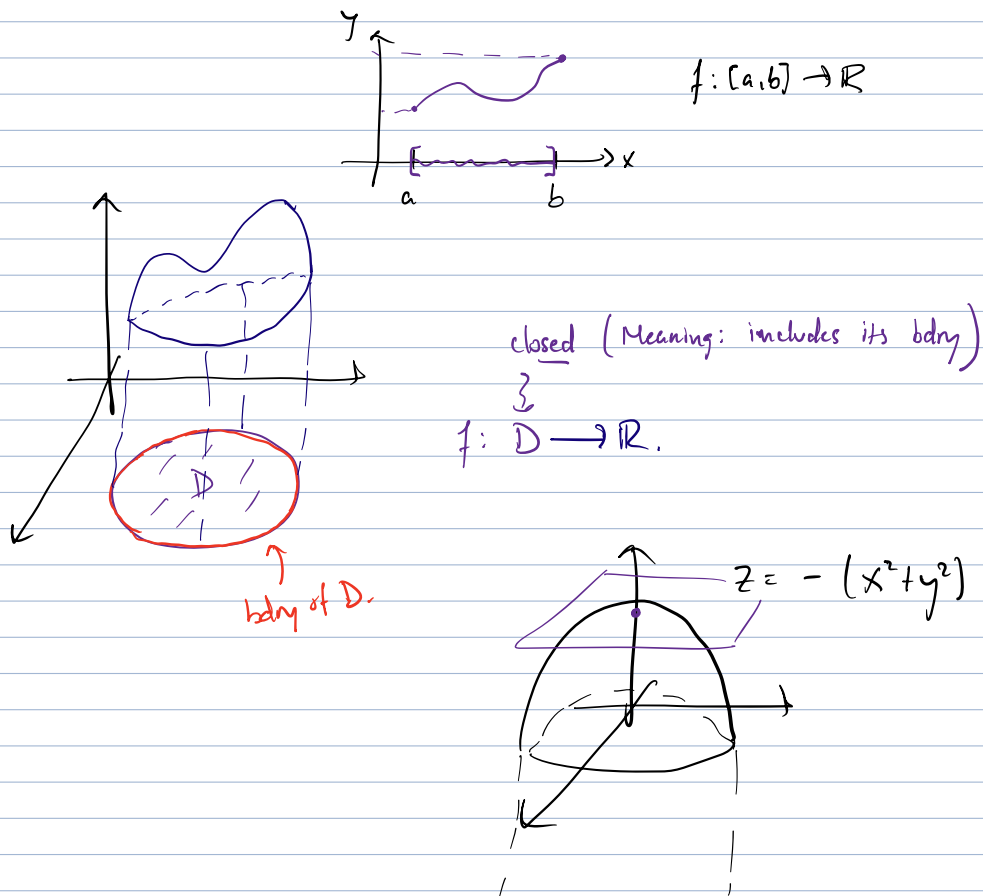 y
f : [a,b] → ℝ
x
a b
closed (Meaning: includes its bdry)
f : D → ℝ.
D
bdry of D.
z = - (x²+y²)